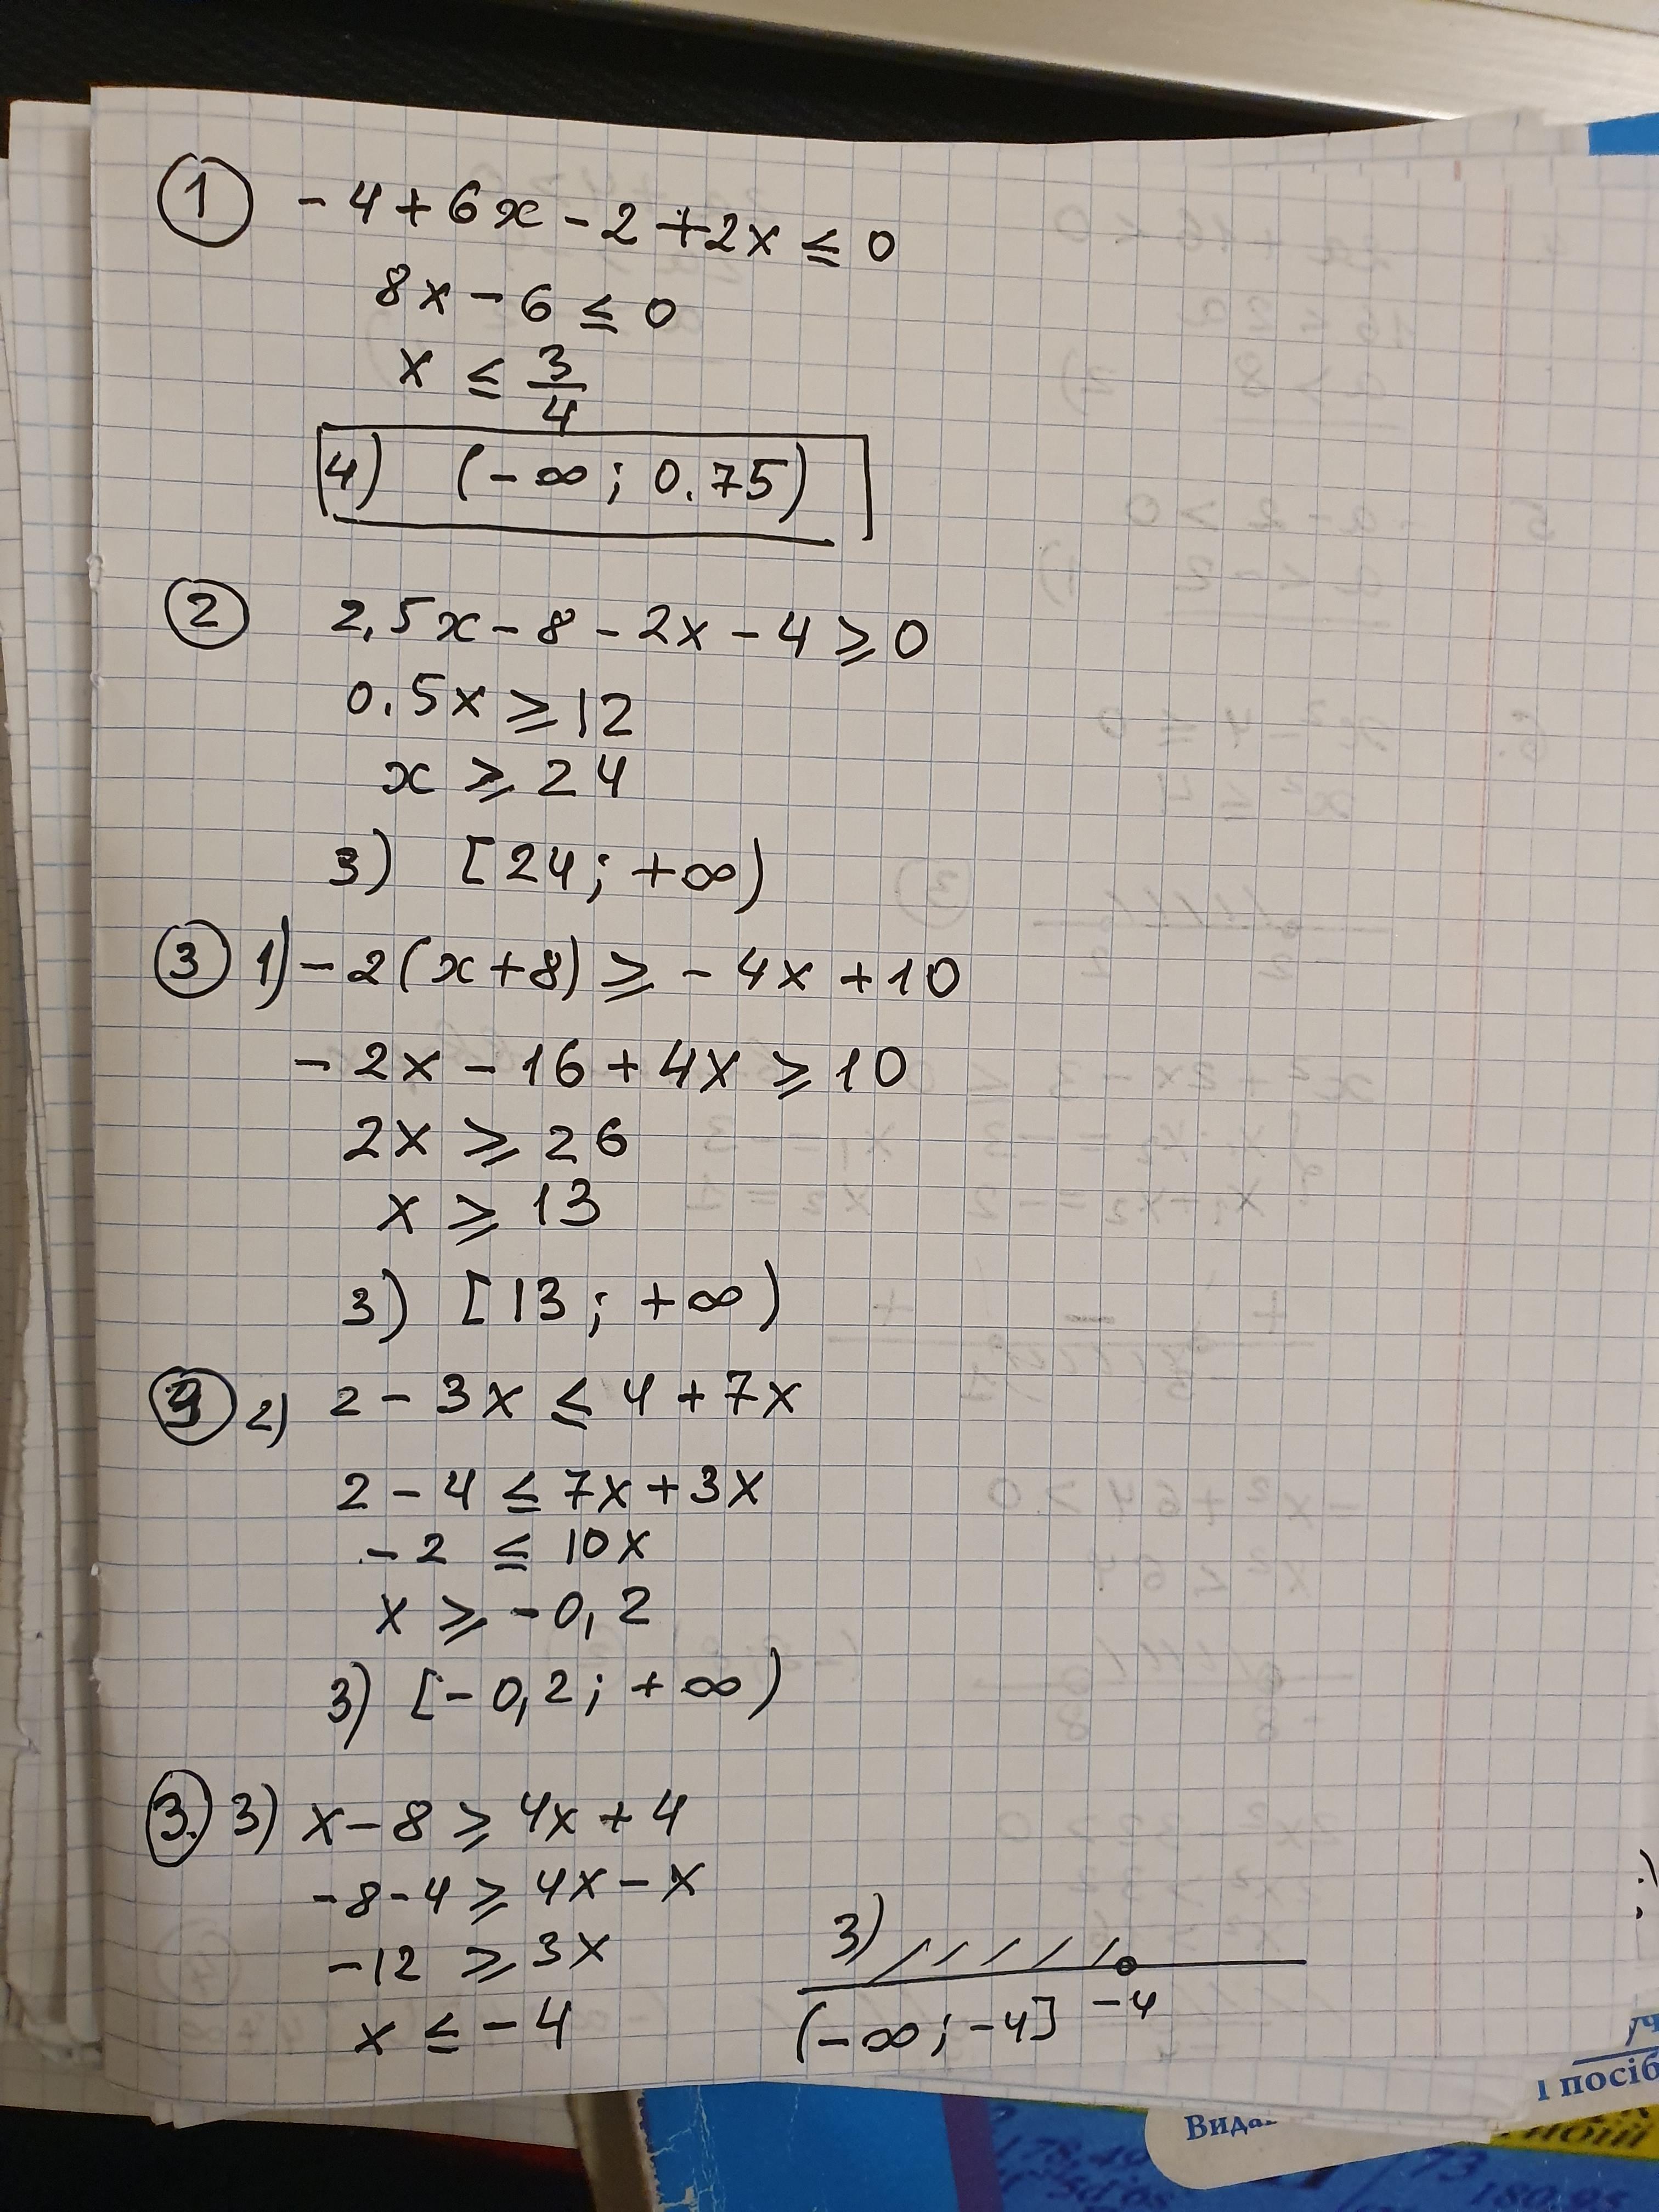 ① -4+6x-2+2x ≤ 0
8x-6 ≤ 0
x ≤ 3/4
4) (-∞; 0.75)
② 2,5x-8-2x-4 ⩾ 0
0.5x ⩾ 12
x ⩾ 24
3) [24; +∞)
③ 1) -2(x+8) ⩾ -4x+10
-2x-16+4x ⩾ 10
2x ⩾ 26
x ⩾ 13
3) [13; +∞)
③ 2) 2-3x ≤ 4+7x
2-4 ≤ 7x+3x
-2 ≤ 10x
x ⩾ -0,2
3) [-0,2; +∞)
③. 3) x-8 ⩾ 4x+4
-8-4 ⩾ 4x-x
-12 ⩾ 3x
x ≤ -4
3)
-4
(-∞; -4]
І посіб
Вида
178,49
73
180,95